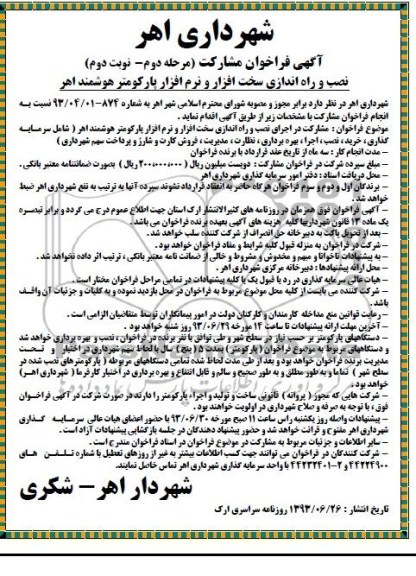 شهرداری اهر
آگهی فراخوان مشارکت (مرحله دوم- نوبت دوم)
نصب و راه اندازی سخت افزار و نرم افزار پارکومتر هوشمند اهر
شهرداری اهر در نظر دارد برابر مجوز و مصوبه شورای محترم اسلامی شهر اهر به شماره ۸۷۴-۹۳/۰۴/۰۱ نسبت به
انجام فراخوان مشارکت با مشخصات زیر از طریق آگهی اقدام نماید .
موضوع فراخوان : مشارکت در اجرای نصب و راه اندازی سخت افزار و نرم افزار پارکومتر هوشمند اهر ( شامل سرمایه
گذاری ، خرید ، نصب ، اجرا ، بهره برداری ، نظارت ، مدیریت ، فروش کارت و شارژ و پرداخت سهم شهرداری)
- مدت انجام کار : سه ماه از تاریخ عقد قرارداد با برنده فراخوان
- مبلغ سپرده شرکت در فراخوان مشارکت : دویست میلیون ریال ( ۲۰۰۰۰۰۰۰۰ ریال ) بصورت ضمانتنامه معتبر بانکی.
- محل دریافت اسناد : دفتر امور سرمایه گذاری شهرداری اهر
- برندگان اول و دوم و سوم فراخوان هرگاه حاضر به انعقاد قرارداد نشوند سپرده آنها به ترتیب به نفع شهرداری اهر ضبط
خواهد شد .
- آگهی فراخوان فوق همزمان در روزنامه های کثیرالانتشار ارک استان جهت اطلاع عموم درج می گردد و برابر تبصره
یک ماده ۱۳ قانون شهرداریها کلیه هزینه های آگهی بعهده برنده فراخوان می باشد.
- بعد از تحویل پاکت به دبیرخانه حق انصراف از شرکت کننده سلب خواهد شد.
- شرکت در فراخوان به منزله قبول کلیه شرایط و مفاد فراخوان خواهد بود .
- به پیشنهادات ناخوانا و مبهم و مخدوش و مشروط و خالی از ضمانت نامه معتبر بانکی ، ترتیب اثر داده نخواهد شد .
- محل ارائه پیشنهادها : دبیرخانه مرکزی شهرداری اهر .
- هیات عالی سرمایه گذاری در رد یا قبول یک یا کلیه پیشنهادات در تمامی مراحل فراخوان مختار است .
- شرکت کننده می بایست از کلیه محل موضوع مربوط به فراخوان در محل بازدید نموده و به کلیات و جزئیات آن واقف
باشد .
- رعایت قوانین منع مداخله کارمندان و کارکنان دولت در امور پیمانکاران توسط متقاضیان الزامی است .
- آخرین مهلت ارائه پیشنهادات تا ساعت ۱۴ مورخه ۹۳/۰۶/۲۹ روز شنبه خواهد بود .
- دستگاههای پارکومتر بر حسب نیاز در سطح شهر و طی توافق با نفر برنده در فراخوان ، نصب و بهره برداری خواهد شد
و دستگاههای مربوط به موضوع فراخوان (پارکومتر) بمدت ۵ (پنج) سال با لحاظ سهم شهرداری در اختیار و تحت
مدیریت برنده فراخوان خواهد بود و بعد از طی مدت لحاظ شده تمامی دستگاههای مربوطه ( پارکومترهای نصب شده در
سطح شهر ) تماما و به طور مطلق و به طور صحیح و سالم و قابل انتفاع و بهره برداری در اختیار کارفرما ( شهرداری اهر)
خواهد بود .
- شرکت هایی که مجوز ( پروانه ) قانونی ساخت و تولید و اجراء پارکومتر را دارند در صورت شرکت در آگهی فراخوان
فوق ، با توجه به صرفه و صلاح شهرداری در اولویت هستند .
- پیشنهادات واصله روز یکشنبه راس ساعت ۱۱ صبح مورخه ۹۳/۰۶/۳۰ با حضور اعضای هیات عالی سرمایه گذاری
شهرداری اهر مفتوح و قرائت خواهد شد و حضور پیشنهاد دهندگان در جلسه بازگشایی پیشنهادات آزاد است .
- سایر اطلاعات و جزئیات مربوط به مشارکت در موضوع فراخوان در اسناد فراخوان مندرج است .
- شرکت کنندگان در فراخوان می توانند جهت کسب اطلاعات بیشتر به غیر از روزهای تعطیل با شماره تلفن های
۴۴۲۲۴۹۰۰ و ۲-۴۴۲۳۲۴۰۱ با واحد سرمایه گذاری شهرداری اهر تماس حاصل نمایند.
شهردار اهر - شکری
تاریخ انتشار : ۱۳۹۳/۰۶/۲۶ روزنامه سراسری ارک